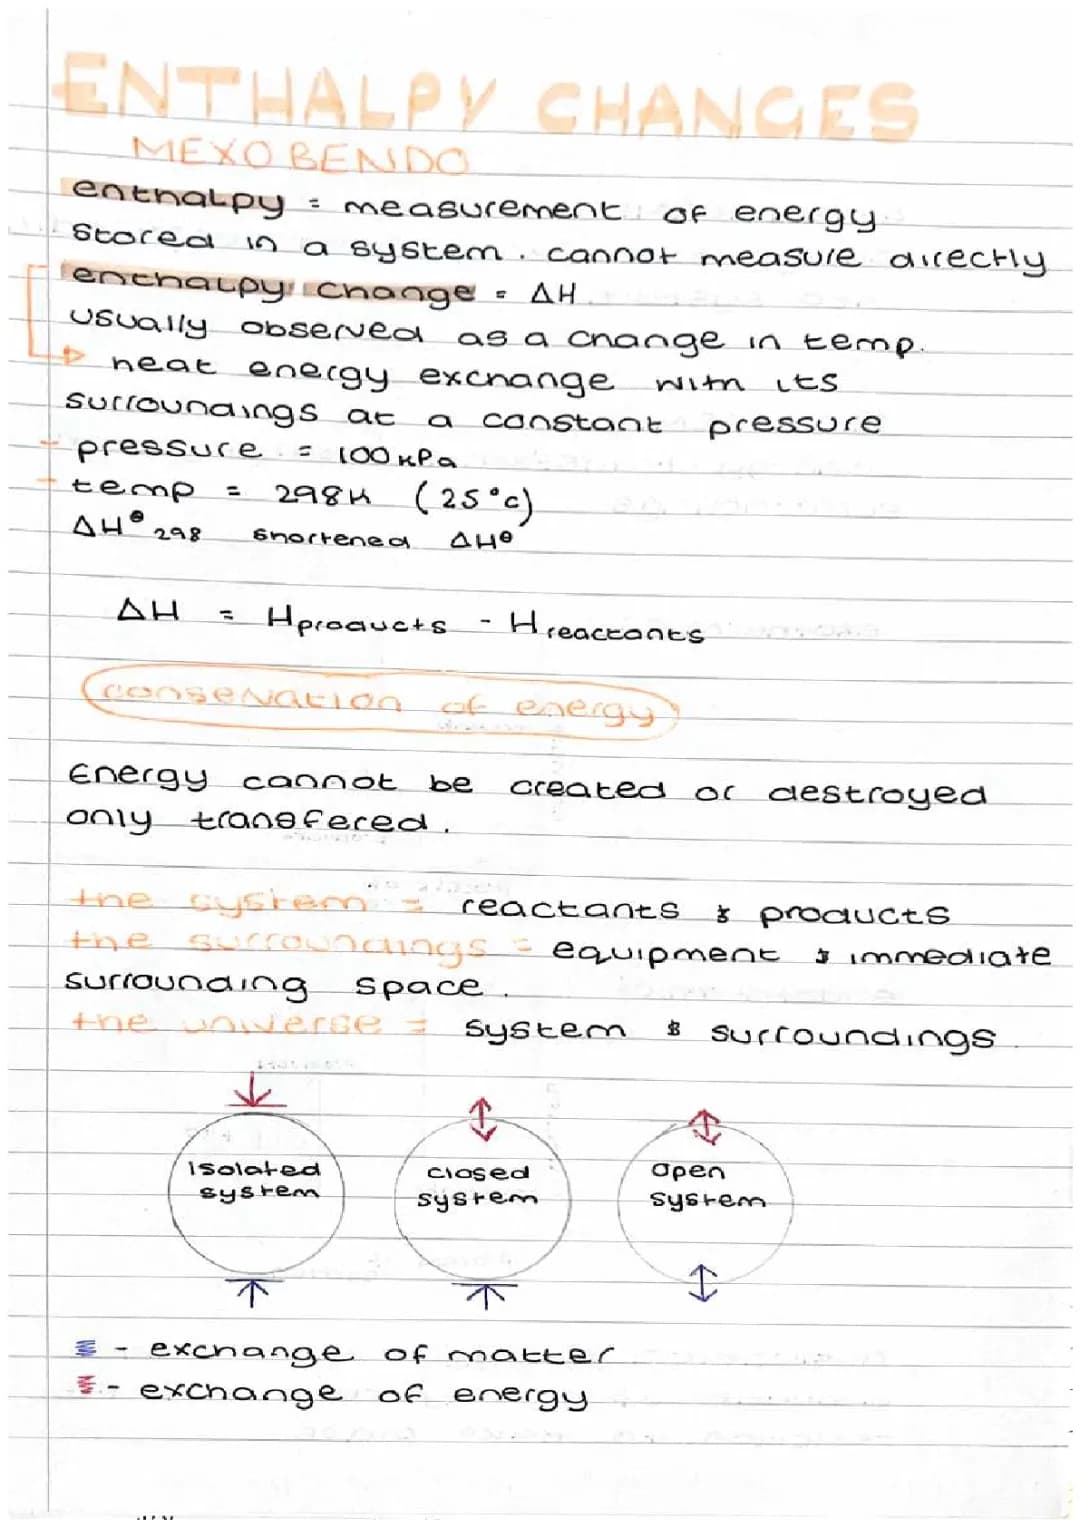 ENTHALPY CHANGES
MEXO BENDO
enthalpy = measurement of energy
stored in a system. cannot measure directly
enthalpy change = ΔH
usually observed as a change in temp.
heat energy exchange with its
surroundings at a constant pressure
- pressure = 100 kPa
- temp = 298K (25°c)
ΔH⦵298 shortened ΔH⦵
ΔH = Hproducts - Hreactants
conservation of energy
Energy cannot be created or destroyed
only transfered.
the system = reactants & products
the surroundings = equipment & immediate
surrounding space.
the universe = system & surroundings
isolated closed open
system system system
- exchange of matter
- exchange of energy